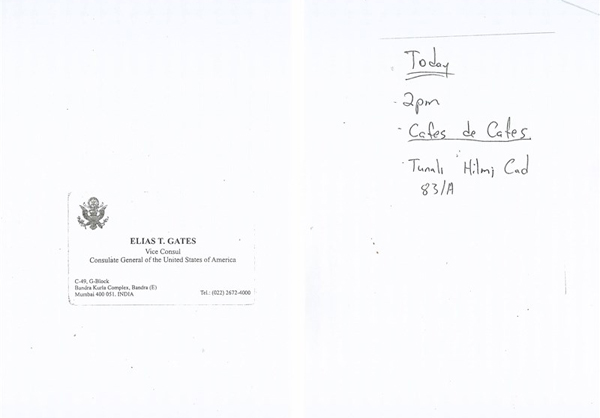 ELIAS T. GATES
Vice Consul
Consulate General of the United States of America
C-49, G-Block
Bandra Kurla Complex, Bandra (E)
Mumbai 400 051. INDIA
Tel.: (022) 2672-4000
Today
- 2pm
- Cafes de Cafes
- Tunalı Hilmi Cad
83/A